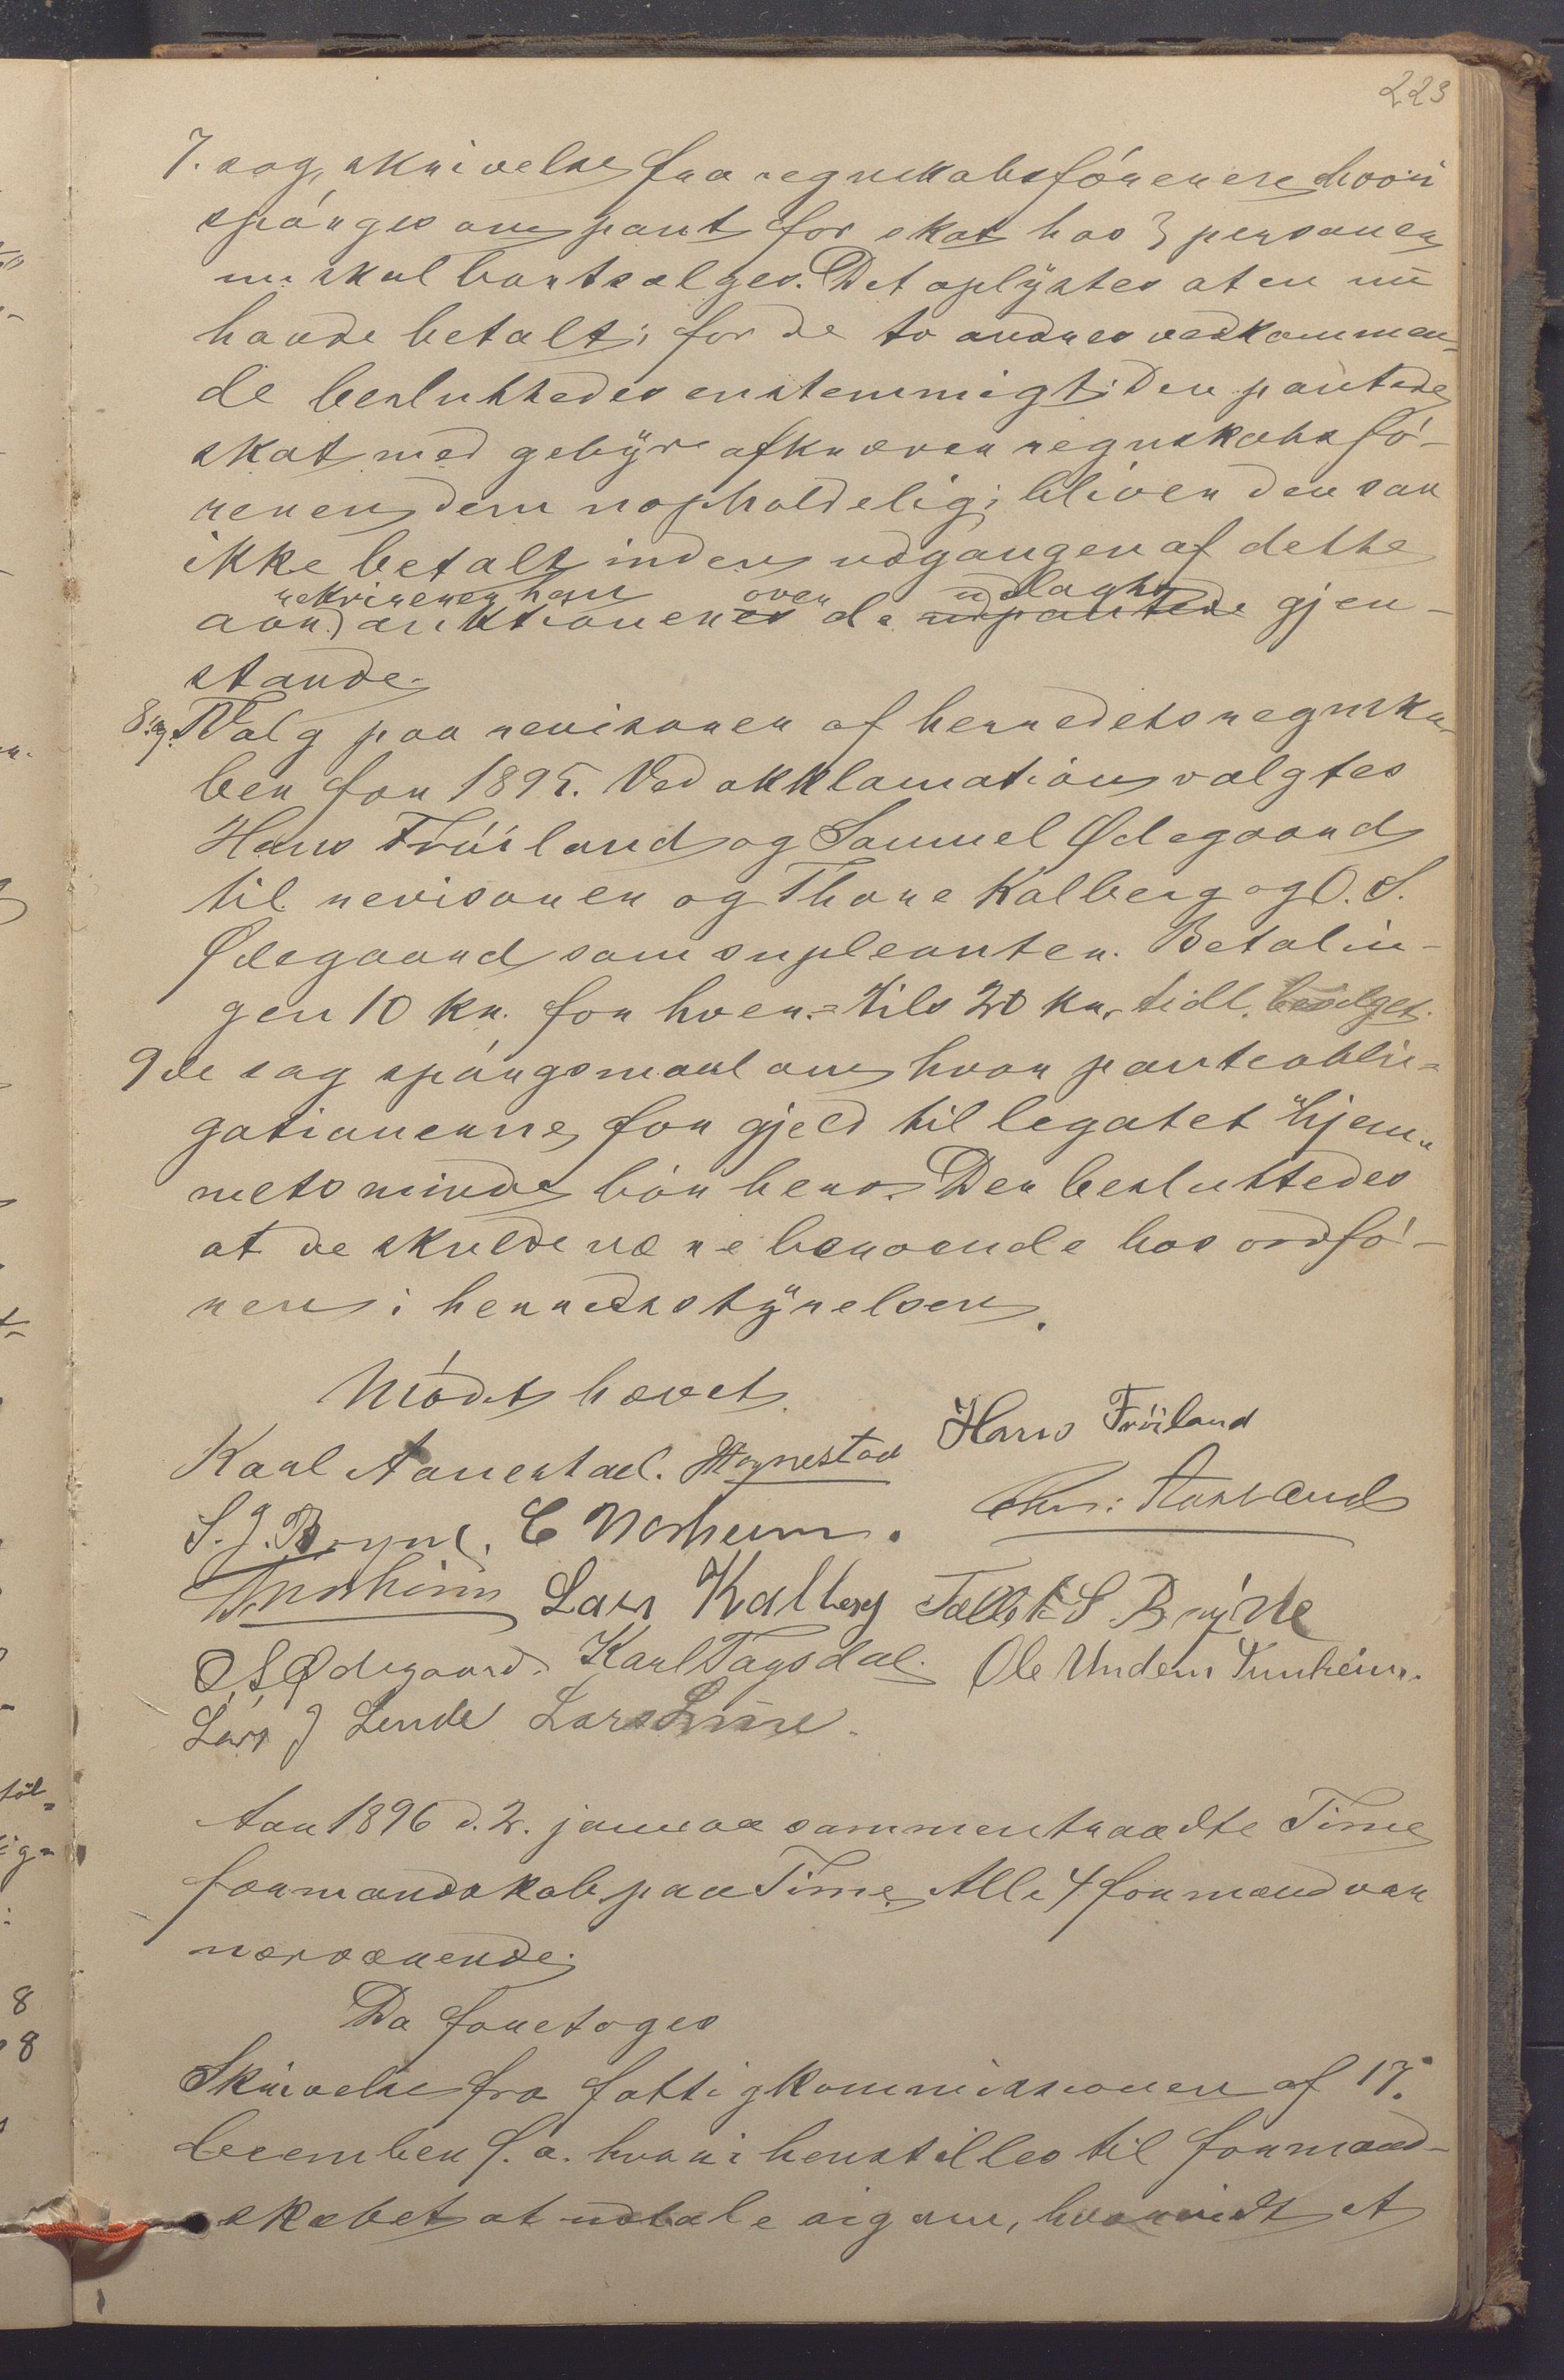 223
7. sag, skrivelse fra regnskabsføreren hvori
spørges om pant for skat hos 3 personer
nu skal bortsælges. Det oplystes at en nu
havde betalt; for de to andres vedkommen-
de besluttedes enstemmigt: Den pantede
skat med gebyr afkræver regnskabsfø-
reren dem uopholdelig; bliver den saa
ikke betalt inden udgangen af dette
rekvirerer han over udlagte
aar, auktioneres de udpantede gjen-
stande.
8. sag. Valg paa revisorer af herredets regnska-
ber for 1895. Ved akklamation valgtes
Hans Fröiland og Samuel Ødegaard
til revisorer og Thore Kalberg og O. S.
Ødegaard som supleanter. Betalin-
gen 10 kr. for hver = tils 20 kr, tidl.
9de sag spørgsmaal om hvor panteobli-
gationerne for gjeld til legatet "Hjem-
mets minde bør bero. Der besluttedes
at de skulde være beroende hos ordfø-
rer i herredsstyrelsen.
Mødet hævet.
Karl Aanestad. Hognestad Hans Fröiland
S. J. Bryne. E Norheim. Chr: Aarsland
Norheim Lars Kalberg Tollek S Bryne
O. S. Ødegaard. Karl Tagsdal. Ole Undem Tunheim.
Lars J Lende Lars Lime.
Aar 1896 d. 2. januar sammentraadte Time
formandskab paa Time. Alle 4 formænd var
nærværende.
Da foretoges
Skrivelse fra fattigkommissionen af 17.
december f. a. hvori henstilles til formand-
skabet at udtale sig om, hvorvidt et